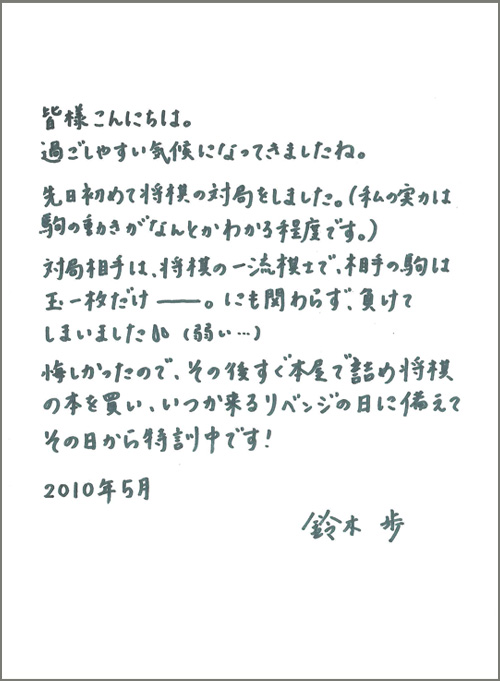 皆様こんにちは。
過ごしやすい気候になってきましたね。
先日初めて将棋の対局をしました。(私の実力は
駒の動きがなんとかわかる程度です。)
対局相手は、将棋の一流棋士で、相手の駒は
玉一枚だけ――。にも関わらず、負けて
しまいました (弱い…)
悔しかったので、その後すぐ本屋で詰め将棋
の本を買い、いつか来るリベンジの日に備えて
その日から特訓中です!
2010年5月
鈴木 歩